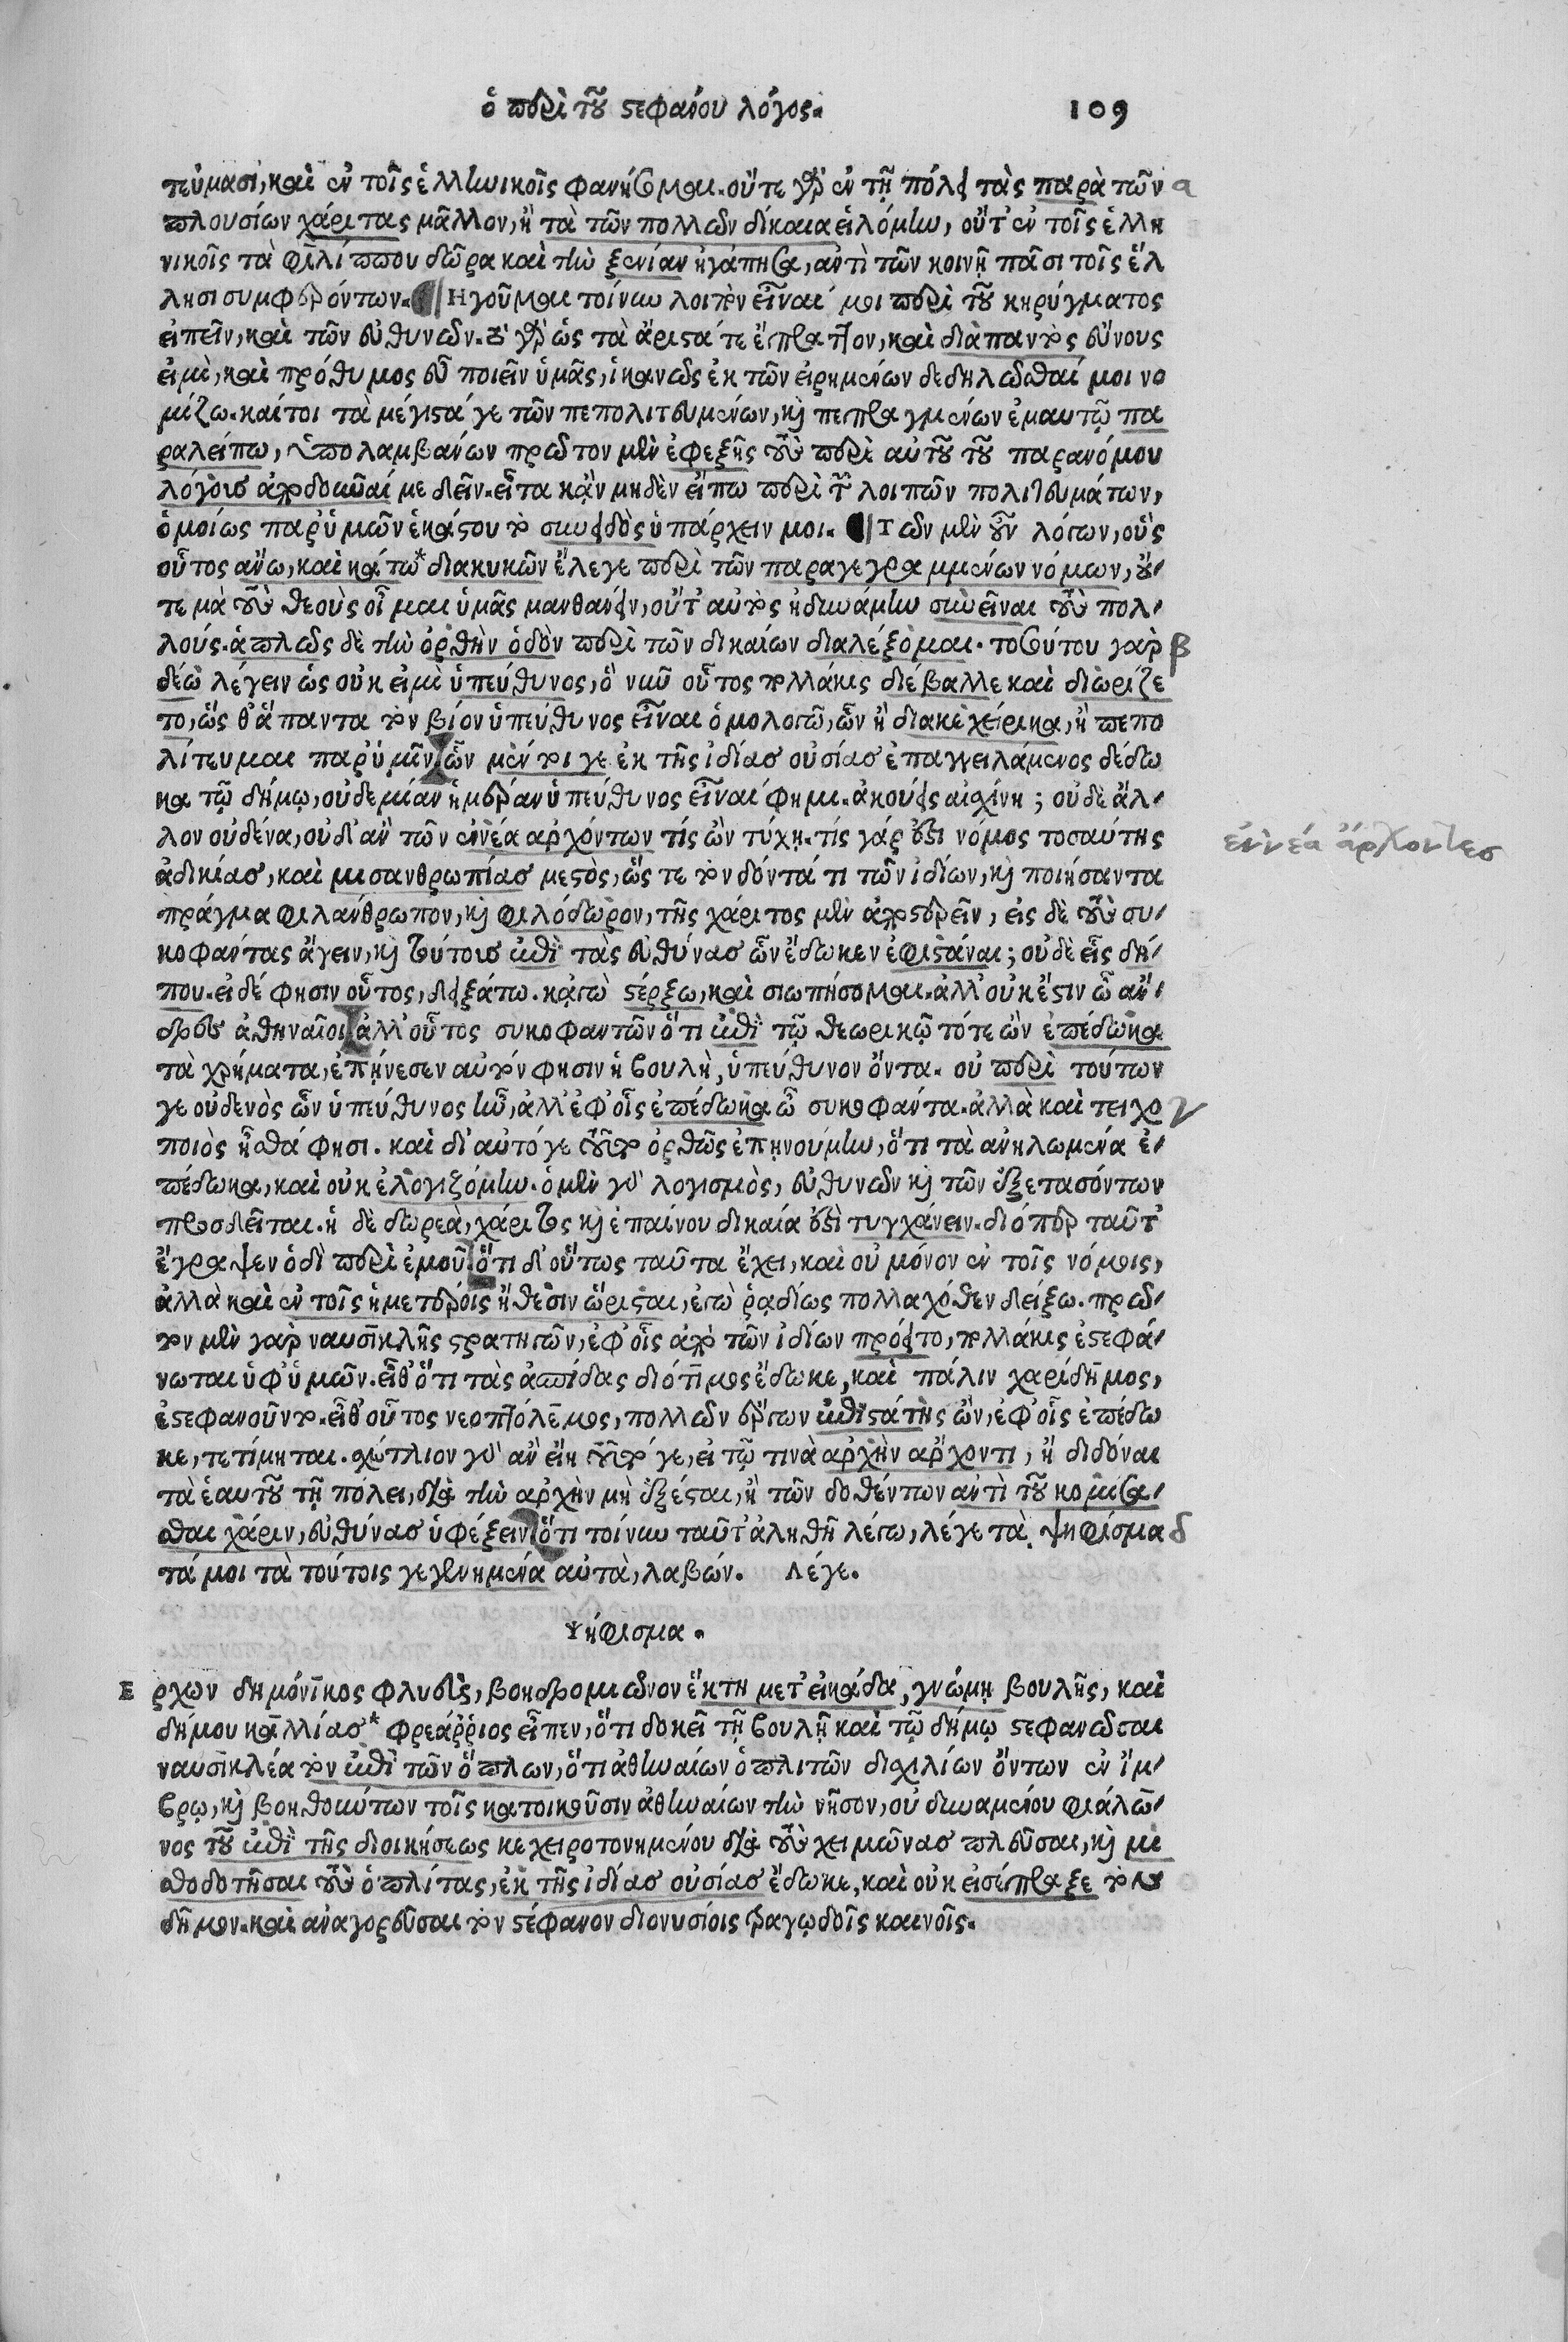 ὁ περὶ τοῦ στεφάνου λόγος. 109
τεύμασι, καὶ ἐν τοῖς ἑλληνικοῖς φανήσομαι. οὔτε γὰρ ἐν τῇ πόλει τὰς παρὰ τῶν α
πλουσίων χάριτας μᾶλλον, ἢ τὰ τῶν πολλῶν δίκαια εἱλόμην, οὔτ' ἐν τοῖς ἑλλη
νικοῖς τὰ φιλίππου δῶρα καὶ τὴν ξενίαν ἠγάπησα, ἀντὶ τῶν κοινῇ πᾶσι τοῖς ἕλ
λησι συμφερόντων. Ηγοῦμαι τοίνυν λοιπὸν εἶναί μοι περὶ τοῦ κηρύγματος
εἰπεῖν, καὶ τῶν εὐθυνῶν. τὸ γὰρ ὡς τὰ ἄριστά τε ἔπραττον, καὶ διὰ παντὸς εὔνους
εἰμὶ, καὶ πρόθυμος εὖ ποιεῖν ὑμᾶς, ἱκανῶς ἐκ τῶν εἰρημένων δεδηλῶσθαί μοι νο
μίζω. καίτοι τὰ μέγιστά γε τῶν πεπολιτευμένων, καὶ πεπραγμένων ἐμαυτῷ πα
ραλείπω, ὑπολαμβάνων πρῶτον μὲν ἐφεξῆς τοὺς περὶ αὐτοῦ τοῦ παρανόμου
λόγους ἀποδοῦναί με δεῖν. εἶτα κἂν μηδὲν εἴπω περὶ τῶν λοιπῶν πολιτευμάτων,
ὁμοίως παρ' ὑμῶν ἑκάστου τὸ συνειδὸς ὑπάρχειν μοι. Τῶν μὲν οὖν λόγων, οὓς
οὗτος ἄνω, καὶ κάτω* διακυκῶν ἔλεγε περὶ τῶν παραγεγραμμένων νόμων, οὔ-
τε μὰ τοὺς θεοὺς οἶμαι ὑμᾶς μανθάνειν, οὔτ' αὐτὸς ἠδυνάμην συνεῖναι τοὺς πολ-
λούς. ἁπλῶς δὲ τὴν ὀρθὴν ὁδὸν περὶ τῶν δικαίων διαλέξομαι. τοσούτου γὰρ β
δέω λέγειν ὡς οὐκ εἰμὶ ὑπεύθυνος, ὃ νῦν οὗτος πολλάκις διέβαλλε καὶ διωρίζε
το, ὥσθ' ἅπαντα τὸν βίον ὑπεύθυνος εἶναι ὁμολογῶ, ὧν ἢ διακεχείρικα, ἢ πεπο
λίτευμαι παρ' ὑμῖν, ὧν μέντοι γε ἐκ τῆς ἰδίας οὐσίας ἐπαγγειλάμενος δέδω
κα τῷ δήμῳ, οὐδεμίαν ἡμέραν ὑπεύθυνος εἶναί φημι. ἀκούεις αἰσχίνη; οὐδὲ ἄλ-
λον οὐδένα, οὐδ' ἂν τῶν ἐννέα ἀρχόντων τίς ὢν τύχῃ. τίς γάρ ἐστι νόμος τοσαύτης
ἐννέα ἄρχοντες
ἀδικίας, καὶ μισανθρωπίας μεστὸς, ὥστε τὸν δόντά τι τῶν ἰδίων, καὶ ποιήσαντα
πράγμα φιλάνθρωπον, καὶ φιλόδωρον, τῆς χάριτος μὲν ἀποστερεῖν, εἰς δὲ τοὺς συ-
κοφάντας ἄγειν, καὶ τούτους ἐπὶ τὰς εὐθύνας ὧν ἔδωκεν ἐφιστάναι; οὐδὲ εἷς δή-
που. εἰ δέ φησιν οὗτος, δειξάτω. κἀγὼ στέρξω, καὶ σιωπήσομαι. ἀλλ' οὐκ ἔστιν ὦ ἄν-
δρες ἀθηναῖοι, ἀλλ' οὗτος συκοφαντῶν ὅτι ἐπὶ τῷ θεωρικῷ τότε ὢν ἐπέδωκα
τὰ χρήματα, ἐπῄνεσεν αὐτὸν φησιν ἡ βουλὴ, ὑπεύθυνον ὄντα. οὐ περὶ τούτων
γε οὐδενὸς ὧν ὑπεύθυνος ἦν, ἀλλ' ἐφ' οἷς ἐπέδωκα ὦ συκοφάντα. ἀλλὰ καὶ τειχο γ
ποιὸς ἦσθά φησι. καὶ δι' αὐτό γε τοῦτο ὀρθῶς ἐπῃνούμην, ὅτι τὰ ἀνηλωμένα ἐ-
πέδωκα, καὶ οὐκ ἐλογιζόμην. ὁ μὲν γὰρ λογισμὸς, εὐθυνῶν καὶ τῶν ἐξετασόντων
προσδεῖται. ἡ δὲ δωρεὰ, χάριτος καὶ ἐπαίνου δικαία ἐστὶ τυγχάνειν. διόπερ ταῦτ'
ἔγραψεν ὁδὶ περὶ ἐμοῦ. ὅτι δ' οὕτως ταῦτα ἔχει, καὶ οὐ μόνον ἐν τοῖς νόμοις,
ἀλλὰ καὶ ἐν τοῖς ἡμετέροις ἤθεσιν ὥρισται, ἐγὼ ῥᾳδίως πολλαχόθεν δείξω. πρῶ-
τον μὲν γὰρ ναυσικλῆς στρατηγῶν, ἐφ' οἷς ἀπὸ τῶν ἰδίων πρόειτο, πολλάκις ἐστεφά-
νωται ὑφ' ὑμῶν. εἶθ' ὅτι τὰς ἀσπίδας διότιμος ἔδωκε, καὶ πάλιν χαρίδημος,
ἐστεφανοῦντο. εἶθ' οὗτος νεοπτόλεμος, πολλῶν ἔργων ἐπιστάτης ὢν, ἐφ' οἷς ἐπέδω
κε, τετίμηται. σχέτλιον γὰρ ἂν εἴη τοῦτό γε, εἰ τῷ τινὰ ἀρχὴν ἄρχοντι, ἢ διδόναι
τὰ ἑαυτοῦ τῇ πόλει, διὰ τὴν ἀρχὴν μὴ ἐξέσται, ἢ τῶν δοθέντων ἀντὶ τοῦ κομίσα-
σθαι χάριν, εὐθύνας ὑφέξειν, ὅτι τοίνυν ταῦτ' ἀληθῆ λέγω, λέγε τὰ ψηφίσμα δ
τά μοι τὰ τούτοις γεγενημένα αὐτὰ, λαβών. Λέγε.
Ψήφισμα.
Ερχων δημόνικος φλυεὺς, βοηδρομιῶνον ἕκτῃ μετ' εἰκάδα, γνώμῃ βουλῆς, καὶ
δήμου καλλίας* φρεάῤῥιος εἶπεν, ὅτι δοκεῖ τῇ βουλῇ καὶ τῷ δήμῳ στεφανῶσαι
ναυσικλέα τὸν ἐπὶ τῶν ὅπλων, ὅτι ἀθηναίων ὁπλιτῶν δισχιλίων ὄντων ἐν ἴμ-
βρῳ, καὶ βοηθούντων τοῖς κατοικοῦσιν ἀθηναίων τὴν νῆσον, οὐ δυναμένου φιάλω-
νος τοῦ ἐπὶ τῆς διοικήσεως κεχειροτονημένου διὰ τοὺς χειμῶνας πλεῦσαι, καὶ μι
σθοδοτῆσαι τοὺς ὁπλίτας, ἐκ τῆς ἰδίας οὐσίας ἔδωκε, καὶ οὐκ εἰσέπραξε τὸν
δῆμον. καὶ ἀναγορεῦσαι τὸν στέφανον διονυσίοις τραγῳδοῖς καινοῖς.